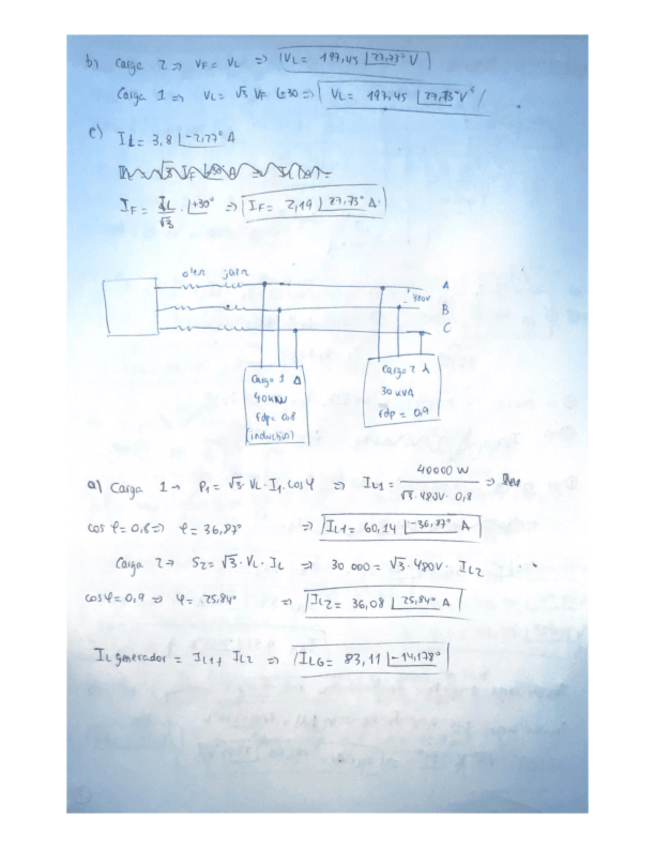 b) Carga 2 => VF = VL => VL = 197,45 ∠27,73° V
Carga 1 => VL = √3 VF ∠+30 => VL = 197,45 ∠27,73° V
c) IL = 3,8 ∠-2,27° A
IF = IL/√3 · ∠+30° => IF = 2,19 ∠27,73° A
0,1Ω j0,1Ω
A
480V
B
C
Carga 1 Δ
40 kW
fdp = 0,8
(inductivo)
Carga 2 ⅄
30 kVA
fdp = 0,9
a) Carga 1 → P1 = √3 · VL · I1 · cos φ => IL1 = 40000 W / √3 · 480V · 0,8 =>
cos φ = 0,8 => φ = 36,87° => IL1 = 60,14 ∠-36,87° A
Carga 2 → S2 = √3 · VL · IL => 30 000 = √3 · 480V · IL2
cos φ = 0,9 => φ = 25,84° => IL2 = 36,08 ∠25,84° A
IL generador = IL1 + IL2 => ILG = 83,11 ∠-14,178°